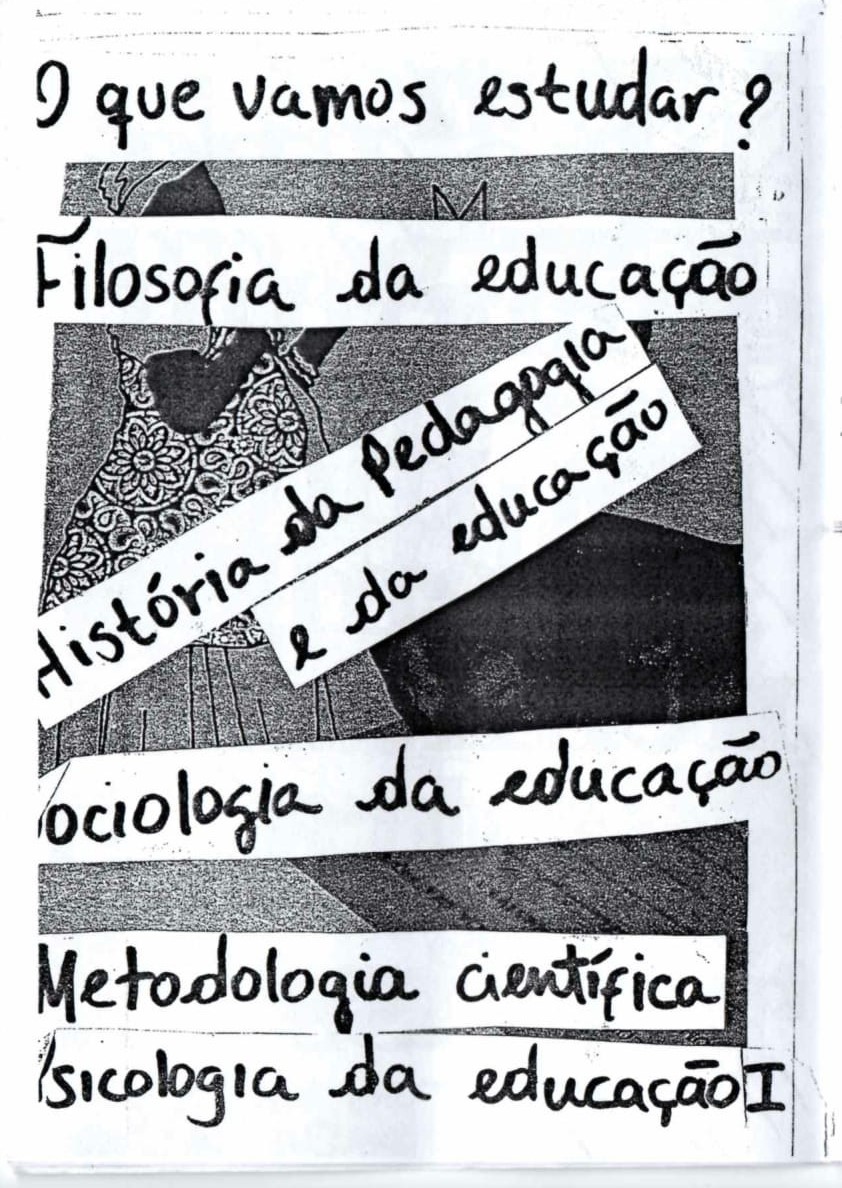 O que vamos estudar?
M
Filosofia da educação
História da Pedagogia
e da educação
Sociologia da educação
Metodologia científica
Psicologia da educação I